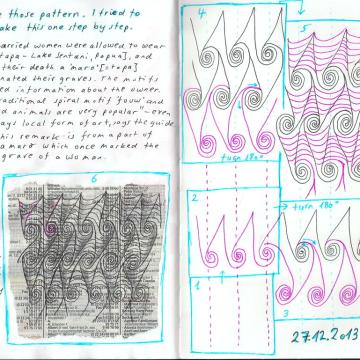 e those pattern. I tried to
ake this one step by step.
arried women were allowed to wear
tapa - Lake Sentani, Papua), and
their death a 'maro' [otapa]
nated their graves. The motifs
ed information about the owner.
raditional spiral motif 'fouw' and
d animals are very popular" - even
ays local form of art, says the guide.
his remark is from a part of
a maro which once marked the
grave of a woman.
6
4
turn 180°
2
1
5
turn 180°
3
27.12.2013